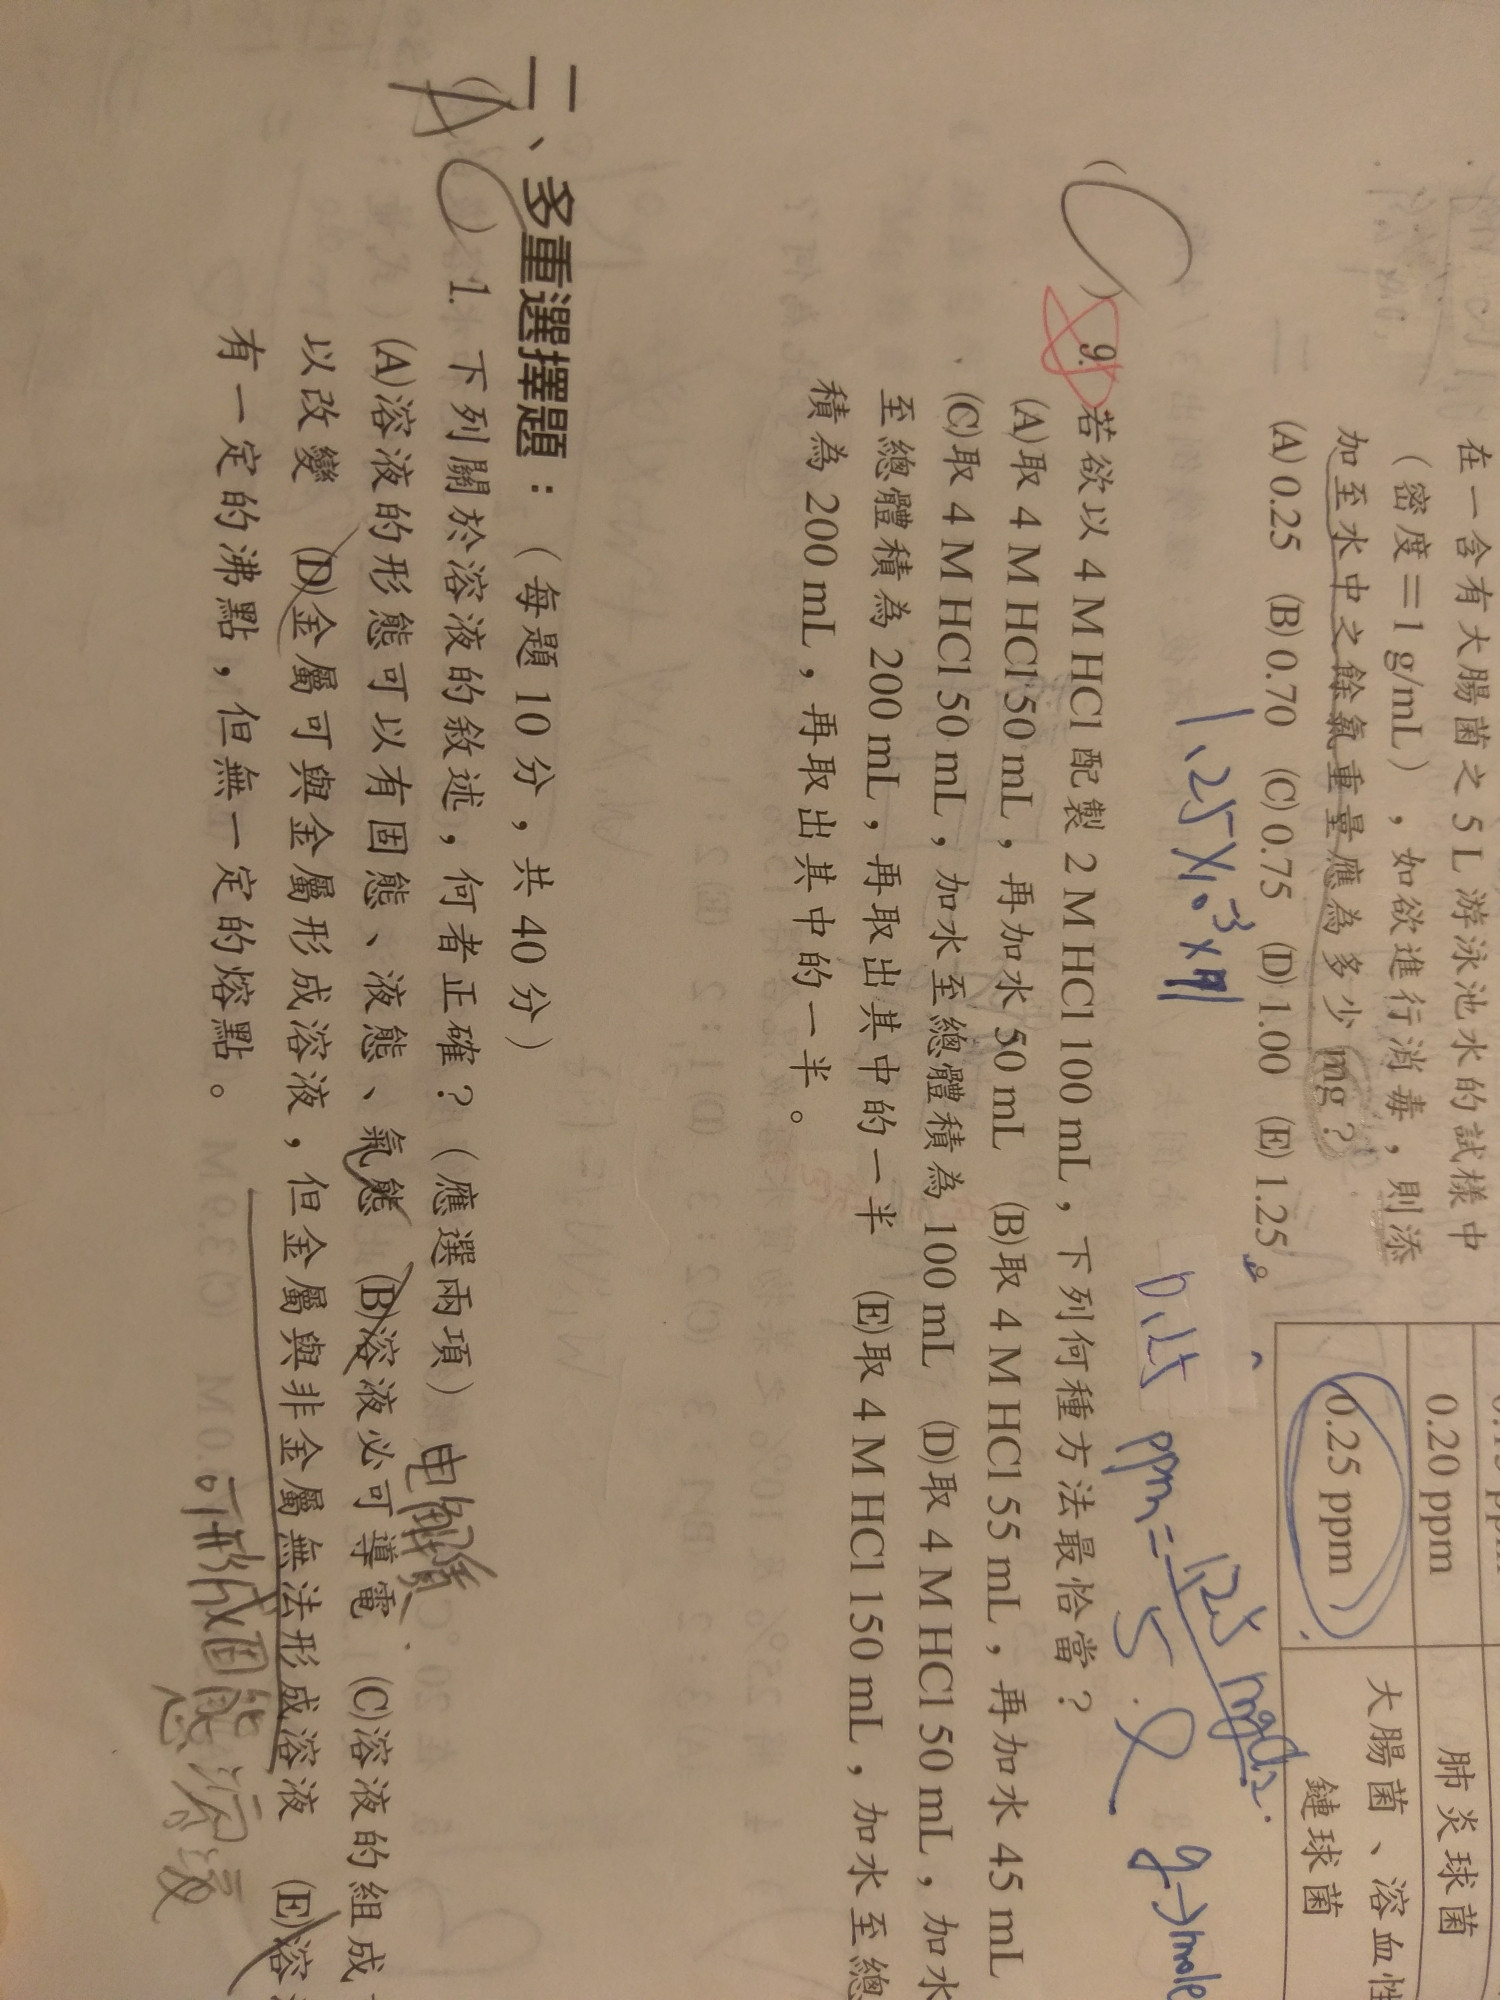 在一含有大腸菌之 5 L 游泳池水的試樣中
（密度＝1 g/mL），如欲進行消毒，則添
加至水中之餘氯重量應為多少 mg？
(A) 0.25 (B) 0.70 (C) 0.75 (D) 1.00 (E) 1.25。
0.20 ppm 肺炎球菌
0.25 ppm 大腸菌、溶血性
鏈球菌
0.25 ppm = 1.25 mg
5 l
g→mole
(C) 9. 若欲以 4 M HCl 配製 2 M HCl 100 mL，下列何種方法最恰當？
(A)取 4 M HCl 50 mL，再加水 50 mL (B)取 4 M HCl 55 mL，再加水 45 mL
(C)取 4 M HCl 50 mL，加水至總體積為 100 mL (D)取 4 M HCl 50 mL，加水
至總體積為 200 mL，再取出其中的一半 (E)取 4 M HCl 150 mL，加水至總
積為 200 mL，再取出其中的一半。
二、多重選擇題：（每題 10 分，共 40 分）
(A C) 1. 下列關於溶液的敘述，何者正確？（應選兩項）
电解質
(A)溶液的形態可以有固態、液態、氣態 (B)溶液必可導電 (C)溶液的組成
以改變 (D)金屬可與金屬形成溶液，但金屬與非金屬無法形成溶液 (E)溶
可形成固態溶液
有一定的沸點，但無一定的熔點。